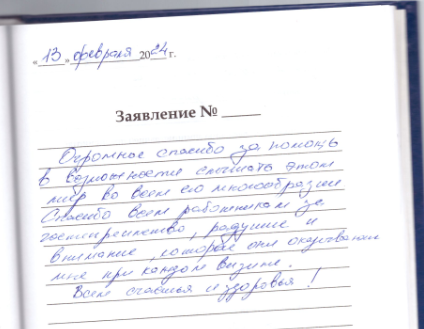 «13» февраля 2024 г.
Заявление №
Огромное спасибо за помощь
в возможности слышать этот
мир во всем его многообразии
Спасибо всем работникам за
гостеприимство, радушие и
внимание, которые они оказывают
мне при каждом визите.
Всем счастья и здоровья!